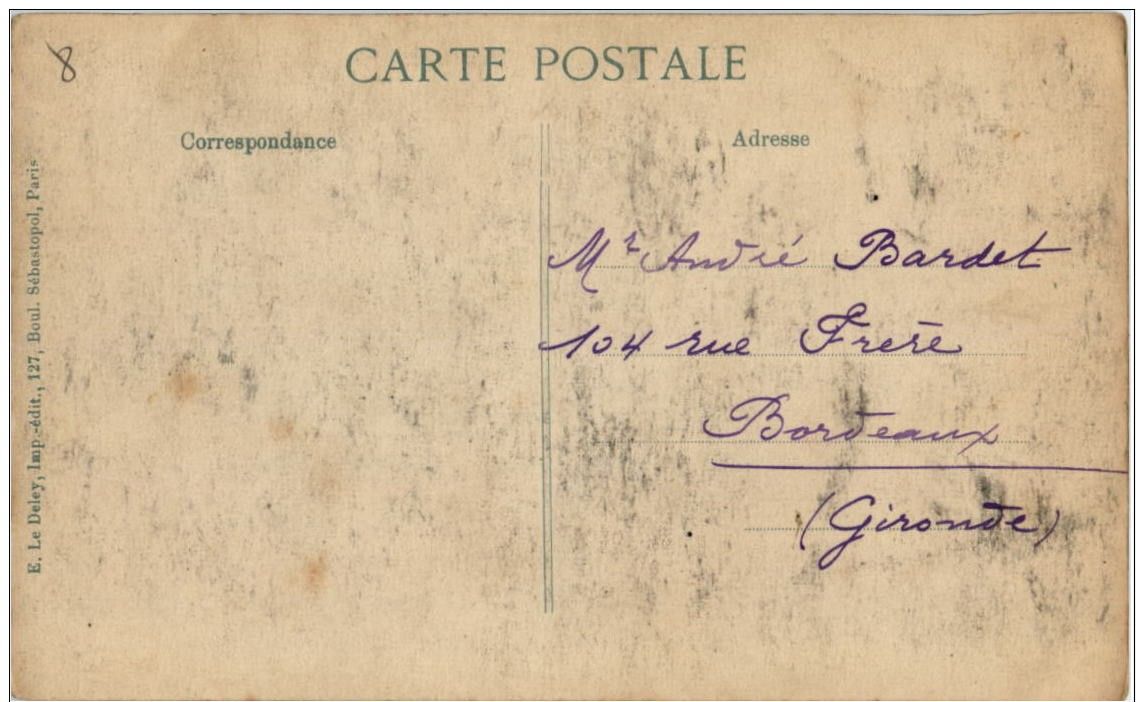 8
CARTE POSTALE
Correspondance
Adresse
E. Le Deley, Imp.-édit., 127, Boul. Sébastopol, Paris
Mr André Bardet
104 rue Frère
Bordeaux
(Gironde)